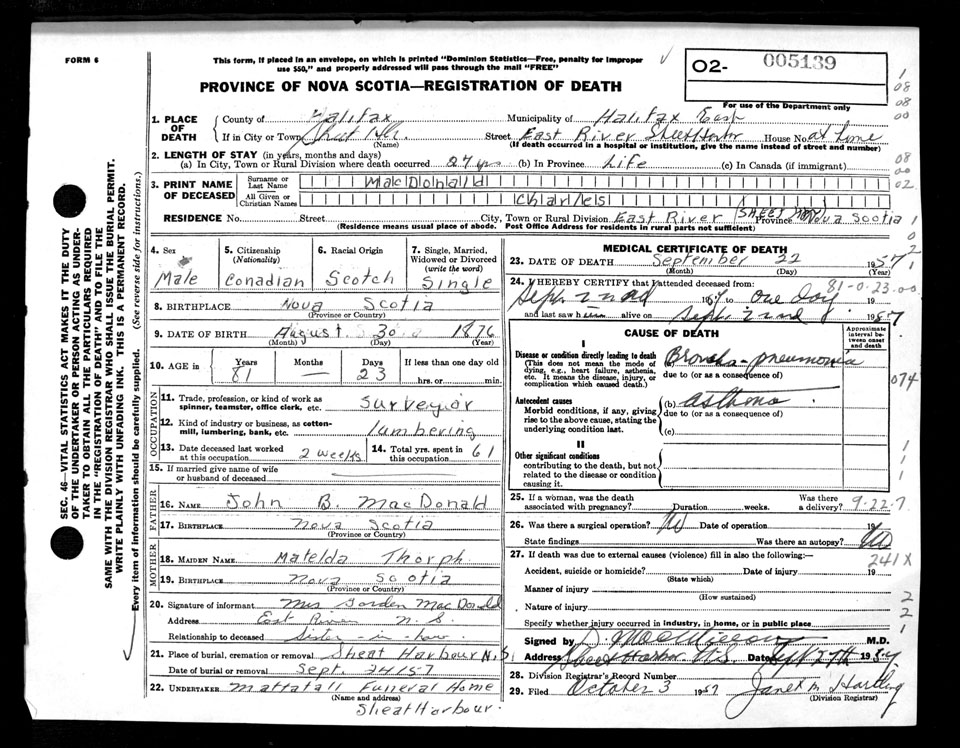 FORM 6
This form, if placed in an envelope, on which is printed "Dominion Statistics—Free, penalty for improper
use $50," and properly addressed will pass through the mail "FREE"
O2- 005139
PROVINCE OF NOVA SCOTIA—REGISTRATION OF DEATH
For use of the Department only
1. PLACE OF DEATH
County of Halifax Municipality of Halifax East
If in City or Town Sheet Hr. (Name) Street East River Sheet Harbor House No. at home
(If death occurred in a hospital or institution, give the name instead of street and number)
2. LENGTH OF STAY (in years, months and days)
(a) In City, Town or Rural Division where death occurred 27 yrs (b) In Province Life (c) In Canada (if immigrant)
3. PRINT NAME OF DECEASED
Surname or Last Name MacDonald
All Given or Christian Names Charles
RESIDENCE No. Street City, Town or Rural Division East River SHEET HBR Province Nova Scotia
(Residence means usual place of abode. Post Office Address for residents in rural parts not sufficient)
4. Sex Male
5. Citizenship (Nationality) Canadian
6. Racial Origin Scotch
7. Single, Married, Widowed or Divorced (write the word) Single
8. BIRTHPLACE Nova Scotia
(Province or Country)
9. DATE OF BIRTH August 30 1876
(Month) (Day) (Year)
10. AGE in Years 81 Months — Days 23 If less than one day old hrs. or min.
OCCUPATION
11. Trade, profession, or kind of work as spinner, teamster, office clerk, etc. surveyor
12. Kind of industry or business, as cotton-mill, lumbering, bank, etc. lumbering
13. Date deceased last worked at this occupation 2 weeks
14. Total yrs. spent in this occupation 61
15. If married give name of wife or husband of deceased
FATHER
16. NAME John B. MacDonald
17. BIRTHPLACE Nova Scotia
(Province or Country)
MOTHER
18. MAIDEN NAME Matelda Thorph
19. BIRTHPLACE Nova Scotia
(Province or Country)
20. Signature of informant Mrs Gorden MacDonald
Address East River N.S.
Relationship to deceased Sister-in-law.
21. Place of burial, cremation or removal Sheat Harbour N.S.
Date of burial or removal Sept. 24/57
22. UNDERTAKER Mattatall Funeral Home
(Name and address)
Sheat Harbour.
MEDICAL CERTIFICATE OF DEATH
23. DATE OF DEATH September 22 1957
(Month) (Day) (Year)
24. I HEREBY CERTIFY that I attended deceased from:
81-0-23.00
Sept. 22nd 1957 to one day 19
and last saw h alive on Sept. 22nd 1957
CAUSE OF DEATH
Approximate interval between onset and death
I
Disease or condition directly leading to death
(This does not mean the mode of dying, e.g., heart failure, asthenia, etc. It means the disease, injury, or complication which caused death.)
(a) Broncho-pneumonia
due to (or as a consequence of)
074
Antecedent causes
Morbid conditions, if any, giving rise to the above cause, stating the underlying condition last.
(b) asthma
due to (or as a consequence of)
(c)
II
Other significant conditions
contributing to the death, but not related to the disease or condition causing it.
25. If a woman, was the death associated with pregnancy? Duration weeks. Was there a delivery? 9-22-7
26. Was there a surgical operation? No Date of operation 19
State findings Was there an autopsy? No
27. If death was due to external causes (violence) fill in also the following:—
241X
Accident, suicide or homicide? Date of injury 19
(State which)
Manner of injury
(How sustained)
Nature of injury
Specify whether injury occurred in industry, in home, or in public place
Signed by D. M.D.
Address Sheet Harbor N.S. Date Sept 27th 1957
28. Division Registrar's Record Number
29. Filed October 3 1957 Janet M. Hartling
(Division Registrar)
SEC. 46—VITAL STATISTICS ACT MAKES IT THE DUTY
OF THE UNDERTAKER OR PERSON ACTING AS UNDER-
TAKER TO OBTAIN ALL THE PARTICULARS REQUIRED
IN THE "REGISTRATION OF DEATH" AND TO FILE THE
SAME WITH THE DIVISION REGISTRAR WHO SHALL ISSUE THE BURIAL PERMIT.
WRITE PLAINLY WITH UNFADING INK. THIS IS A PERMANENT RECORD.
Every item of information should be carefully supplied. (See reverse side for instructions.)